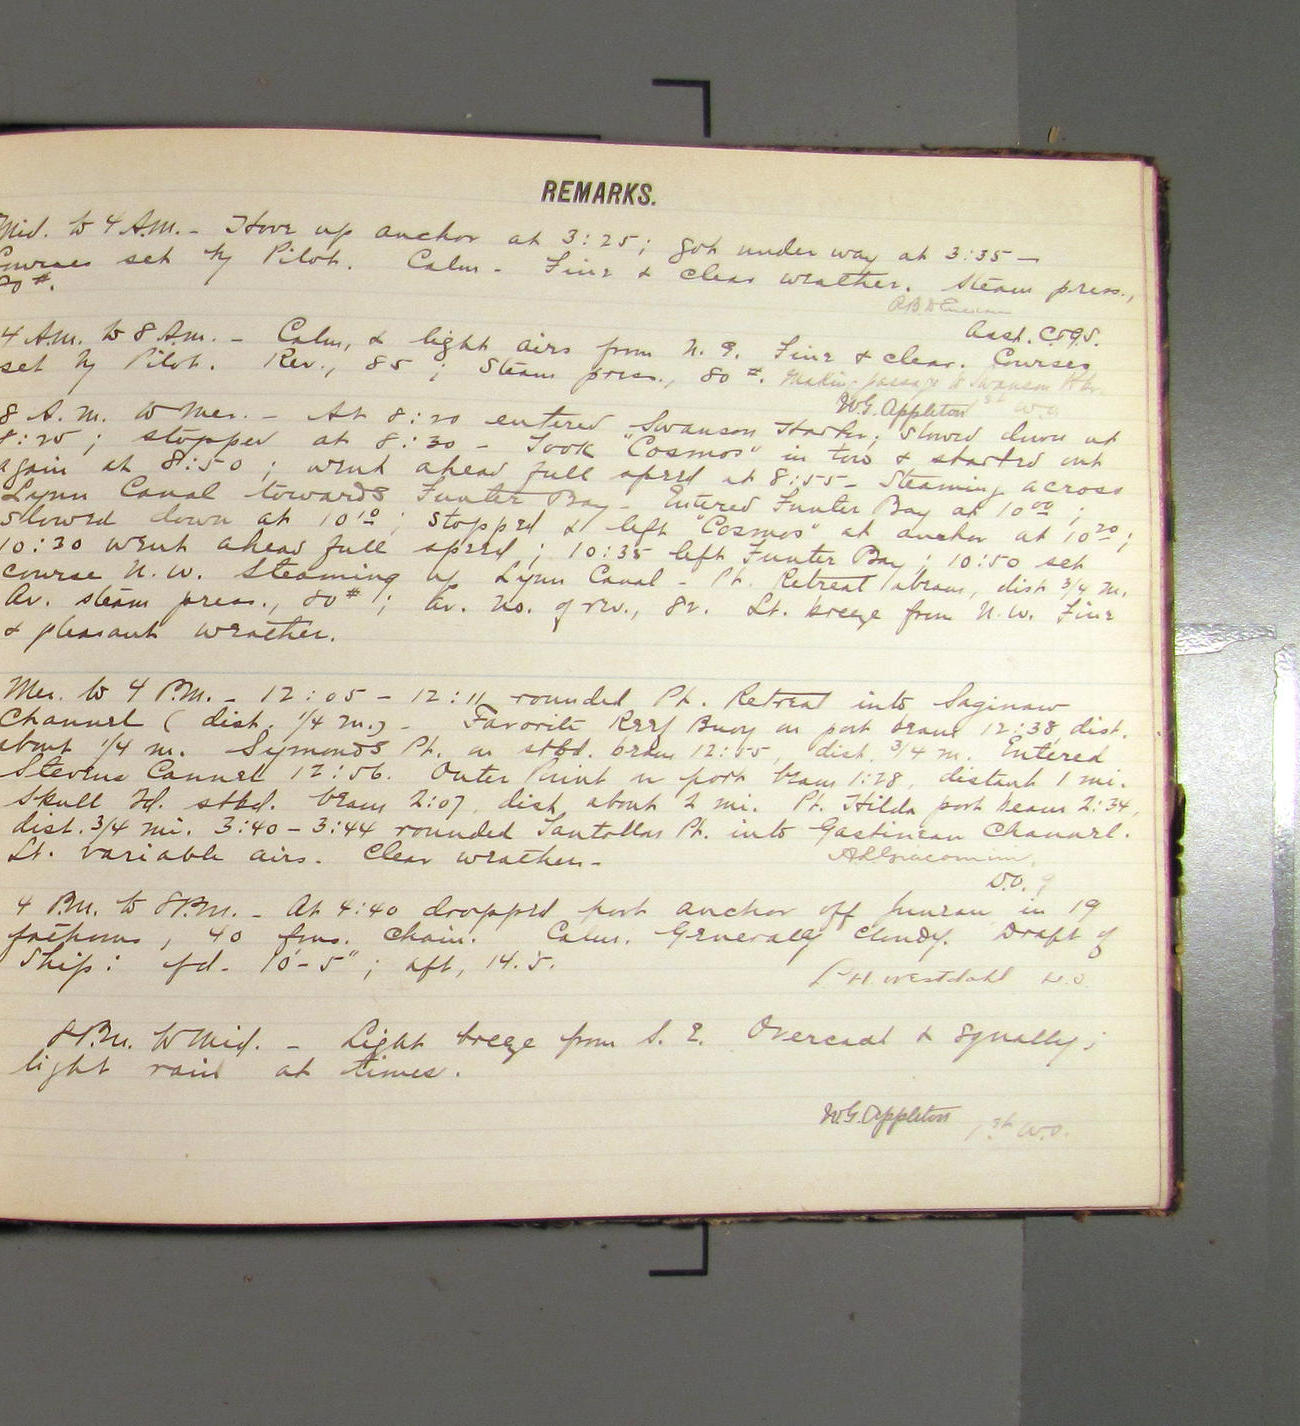 REMARKS.
Mid. to 4 A.M. - Hove up anchor at 3:25; got under way at 3:35 -
Courses set by Pilot. Calm - Fine & clear weather. Steam press.,
80#.
Asst. C.&G.S.
4 A.M. to 8 A.M. - Calm, & light airs from N. E. Fine & clear. Courses
set by Pilot. Rev., 85; Steam press., 80#. Making passage to Swanson Hbr.
W.G. Appleton 1st W.O.
8 A.M. to Mer. - At 8:20 entered Swanson Harbor; slowed down at
8:25; stopped at 8:30 - Took "Cosmos" in tow & started out
again at 8:50; went ahead full speed at 8:55 - Steaming across
Lynn Canal towards Funter Bay - Entered Funter Bay at 10 00;
slowed down at 10 10; stopped & left "Cosmos" at anchor at 10 20;
10:30 went ahead full speed; 10:35 left Funter Bay; 10:50 set
course N.W. Steaming up Lynn Canal - Pt. Retreat abeam, dist 3/4 m.
Av. steam press., 80#; Av. No. of rev., 82. Lt. breeze from N.W. Fine
& pleasant weather.
Mer. to 4 P.M. - 12:05 - 12:11 rounded Pt. Retreat into Saginaw
Channel (dist. 1/4 m.) - Favorite Reef Buoy on port beam 12:38, dist.
about 1/4 m. Symonds Pt. on stbd. beam 12:55, dist. 3/4 m. Entered
Stevens Cannel 12:56. Outer Point on port beam 1:28, distant 1 mi.
Skull Id. stbd. beam 2:07, dist about 2 mi. Pt. Hilda port beam 2:34,
dist. 3/4 mi. 3:40 - 3:44 rounded Tantallon Pt. into Gastineau Channel.
Lt. variable airs. Clear weather -
W.O.
4 P.M. to 8 P.M. - At 4:40 dropped port anchor off Juneau in 19
fathoms, 40 fms. chain. Calm. Generally cloudy. Draft of
Ship: fd. 10'-5"; aft, 14.5.
Westdahl W.O.
8 P.M. to Mid. - Light breeze from S. E. Overcast & squally;
light rain at times.
W.G. Appleton 1st W.O.